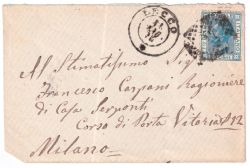 LECCO
All Stimatissimo Sig
Francesco Carsoni Ragioniere
di Casa Serponti
Corso di Porta Vittoria N 12
Milano